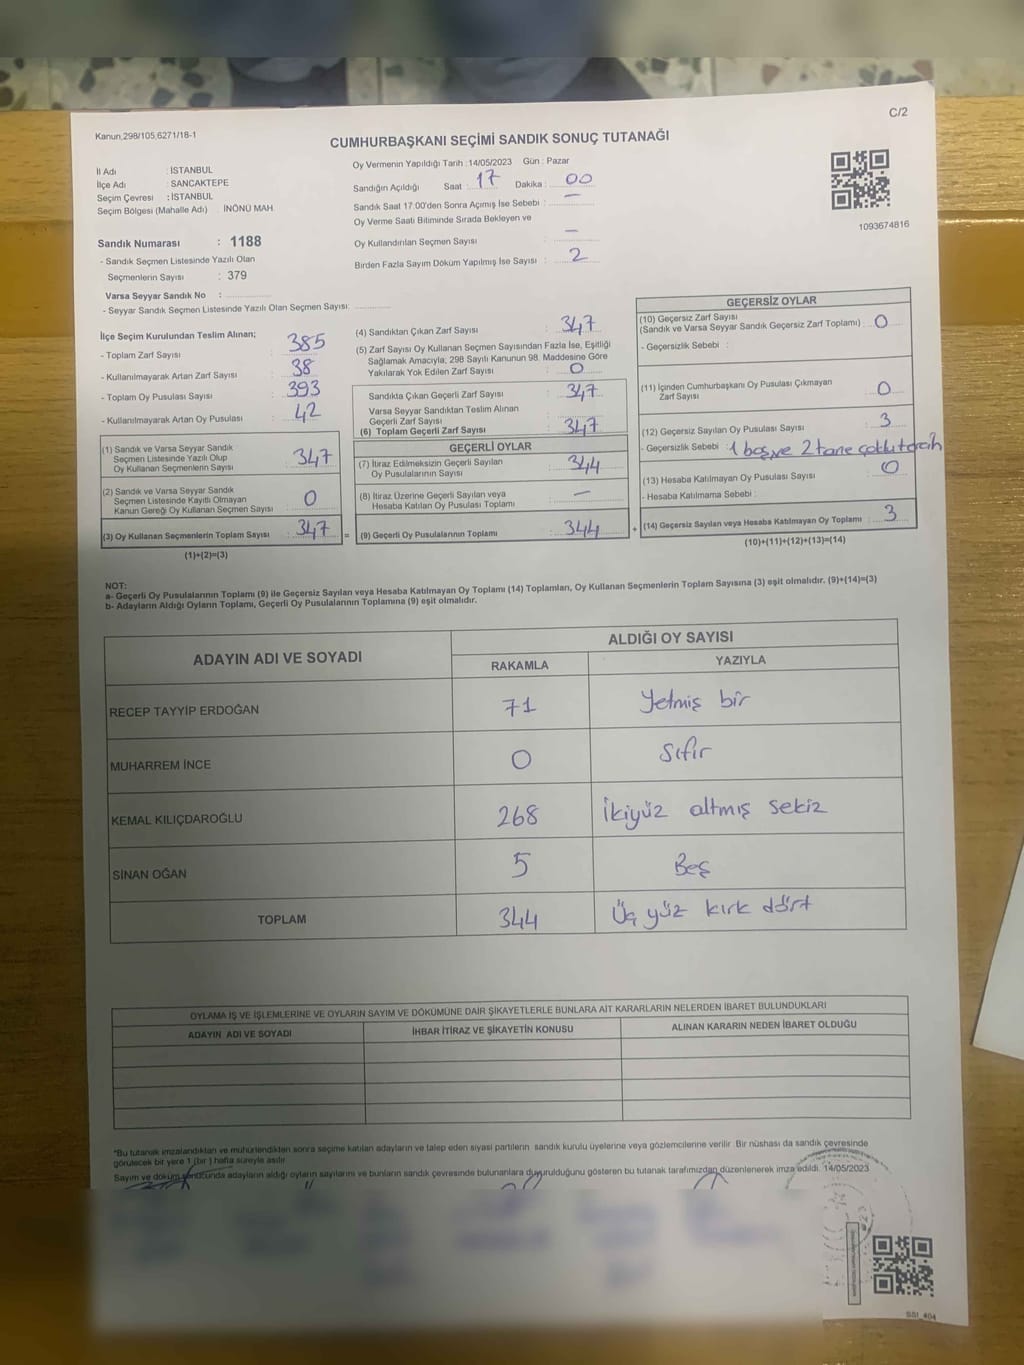 C/2
Kanun,298/105,6271/18-1
CUMHURBAŞKANI SEÇİMİ SANDIK SONUÇ TUTANAĞI
İl Adı : İSTANBUL
İlçe Adı : SANCAKTEPE
Seçim Çevresi : İSTANBUL
Seçim Bölgesi (Mahalle Adı) : İNÖNÜ MAH.
Sandık Numarası : 1188
- Sandık Seçmen Listesinde Yazılı Olan
Seçmenlerin Sayısı : 379
Varsa Seyyar Sandık No :
- Seyyar Sandık Seçmen Listesinde Yazılı Olan Seçmen Sayısı:
Oy Vermenin Yapıldığı Tarih :14/05/2023 Gün : Pazar
Sandığın Açıldığı Saat : 17 Dakika : 00
Sandık Saat 17:00'den Sonra Açımış İse Sebebi : —
Oy Verme Saati Bitiminde Sırada Bekleyen ve
Oy Kullandırılan Seçmen Sayısı : —
Birden Fazla Sayım Döküm Yapılmış İse Sayısı : 2
1093674816
İlçe Seçim Kurulundan Teslim Alınan;
- Toplam Zarf Sayısı : 385
- Kullanılmayarak Artan Zarf Sayısı : 38
- Toplam Oy Pusulası Sayısı : 393
- Kullanılmayarak Artan Oy Pusulası : 42
(1) Sandık ve Varsa Seyyar Sandık
Seçmen Listesinde Yazılı Olup
Oy Kullanan Seçmenlerin Sayısı : 347
(2) Sandık ve Varsa Seyyar Sandık
Seçmen Listesinde Kayıtlı Olmayan
Kanun Gereği Oy Kullanan Seçmen Sayısı : 0
(3) Oy Kullanan Seçmenlerin Toplam Sayısı : 347 =
(1)+(2)=(3)
(4) Sandıktan Çıkan Zarf Sayısı : 347
(5) Zarf Sayısı Oy Kullanan Seçmen Sayısından Fazla İse, Eşitliği
Sağlamak Amacıyla; 298 Sayılı Kanunun 98. Maddesine Göre
Yakılarak Yok Edilen Zarf Sayısı : 0
Sandıkta Çıkan Geçerli Zarf Sayısı : 347
Varsa Seyyar Sandıktan Teslim Alınan
Geçerli Zarf Sayısı :
(6) Toplam Geçerli Zarf Sayısı : 347
GEÇERLİ OYLAR
(7) İtiraz Edilmeksizin Geçerli Sayılan
Oy Pusulalarının Sayısı : 344
(8) İtiraz Üzerine Geçerli Sayılan veya
Hesaba Katılan Oy Pusulası Toplamı : —
(9) Geçerli Oy Pusulalarının Toplamı : 344 +
GEÇERSİZ OYLAR
(10) Geçersiz Zarf Sayısı
(Sandık ve Varsa Seyyar Sandık Geçersiz Zarf Toplamı) : 0
- Geçersizlik Sebebi :
(11) İçinden Cumhurbaşkanı Oy Pusulası Çıkmayan
Zarf Sayısı : 0
(12) Geçersiz Sayılan Oy Pusulası Sayısı : 3
- Geçersizlik Sebebi : 1 boş ve 2 tane çoklu tercih
(13) Hesaba Katılmayan Oy Pusulası Sayısı : 0
- Hesaba Katılmama Sebebi :
(14) Geçersiz Sayılan veya Hesaba Katılmayan Oy Toplamı : 3
(10)+(11)+(12)+(13)=(14)
NOT:
a- Geçerli Oy Pusulalarının Toplamı (9) ile Geçersiz Sayılan veya Hesaba Katılmayan Oy Toplamı (14) Toplamları, Oy Kullanan Seçmenlerin Toplam Sayısına (3) eşit olmalıdır. (9)+(14)=(3)
b- Adayların Aldığı Oyların Toplamı, Geçerli Oy Pusulalarının Toplamına (9) eşit olmalıdır.
ADAYIN ADI VE SOYADI
ALDIĞI OY SAYISI
RAKAMLA YAZIYLA
RECEP TAYYİP ERDOĞAN 71 Yetmiş bir
MUHARREM İNCE 0 Sıfır
KEMAL KILIÇDAROĞLU 268 İkiyüz altmış sekiz
SİNAN OĞAN 5 Beş
TOPLAM 344 Üç yüz kırk dört
OYLAMA İŞ VE İŞLEMLERİNE VE OYLARIN SAYIM VE DÖKÜMÜNE DAİR ŞİKAYETLERLE BUNLARA AİT KARARLARIN NELERDEN İBARET BULUNDUKLARI
ADAYIN ADI VE SOYADI İHBAR İTİRAZ VE ŞİKAYETİN KONUSU ALINAN KARARIN NEDEN İBARET OLDUĞU
*Bu tutanak imzalandıktan ve mühürlendikten sonra seçime katılan adayların ve talep eden siyasi partilerin sandık kurulu üyelerine veya gözlemcilerine verilir. Bir nüshası da sandık çevresinde
görülecek bir yere 1 (bir) hafta süreyle asılır.
Sayım ve döküm sonucunda adayların aldığı oyların sayılarını ve bunların sandık çevresinde bulunanlara duyurulduğunu gösteren bu tutanak tarafımızdan düzenlenerek imza edildi. 14/05/2023